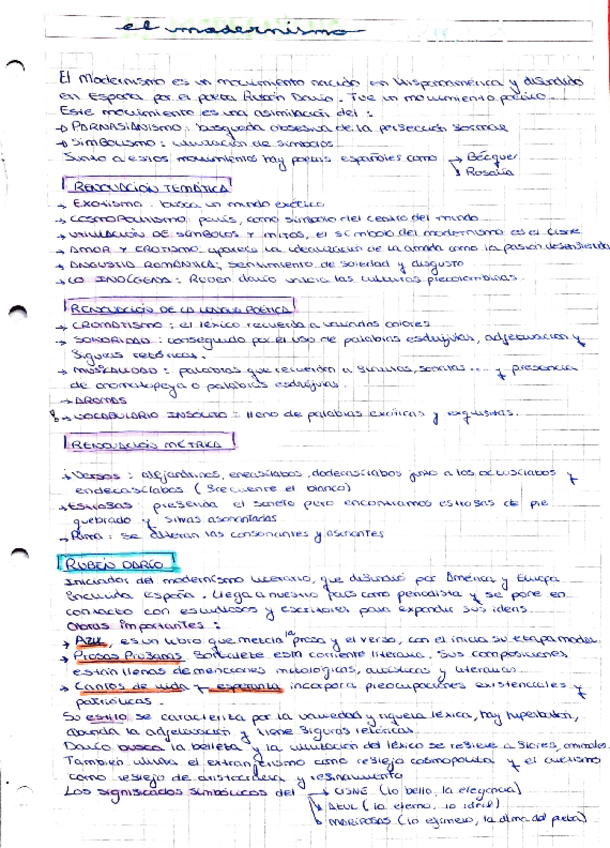 el modernismo
El Modernismo es un movimiento nacido en Hispanoamérica y difundido
en España por el poeta Rubén Darío. Fue un movimiento poético.
Este movimiento es una asimilación del :
→ PARNASIANISMO: busqueda obsesiva de la perfección formal
→ SIMBOLISMO: utilización de símbolos
Junto a estos movimientos hay poetas españoles como → Bécquer
↘ Rosalía
RENOVACIÓN TEMÁTICA
→ EXOTISMO: busca un mundo exótico
→ COSMOPOLITISMO: parís, como símbolo del centro del mundo
→ UTILIZACIÓN DE SÍMBOLOS Y MITOS, el símbolo del modernismo es el cisne
→ AMOR Y EROTISMO: aparece la idealización de la amada como la pasión desenfrenada
→ ANGUSTIA ROMÁNTICA; sentimiento de soledad y disgusto
→ LO INDÍGENA: Ruben darío vincula las culturas precolombinas.
RENOVACIÓN DE LA LENGUA POÉTICA
→ CROMATISMO: el léxico recuerda a variados colores
→ SONORIDAD: conseguido por el uso de palabras esdrújulas, adjetivación y
figuras retóricas.
→ MUSICALIDAD: palabras que recuerden a sonatas .... y presencia
de onomatopeya o palabras esdrújulas.
→ AROMAS
→ VOCABULARIO INSÓLITO: lleno de palabras exóticas y exquisitas.
RENOVACIÓN MÉTRICA
→ Versos: alejandrinos, eneasílabos, dodecasílabos junto a los octosílabos y
endecasílabos (frecuente el blanco)
→ Estrofas: presenta el soneto pero encontramos estrofas de pie
quebrado y silvas asonantadas
→ Rima: se alteran las consonantes y asonantes
RUBÉN DARÍO
Iniciador del modernismo literario, que difundió por América y Europa
incluida España. Llega a nuestro país como periodista y se pone en
contacto con estudiosos y escritores para expandir sus ideas.
Obras importantes :
→ Azul, es un libro que mezcla la prosa y el verso, con el inicia su etapa moder.
→ Prosas Profanas. Fortalece esta corriente literaria. Sus composiciones,
están llenas de menciones mitológicas, artísticas y literarias.
→ Cantos de vida y esperanza incorpora preocupaciones existenciales y
patrióticas.
Su estilo se caracteriza por la variedad y riqueza léxica, hay hiperbaton,
abunda la adjetivación y tiene figuras retóricas.
Darío busca la belleza y la utilización del léxico se refiere a flores, animales.
También utiliza el extranjerismo como reflejo cosmopolita y el cultismo
como reflejo de aristocracia y refinamiento
Los significados simbólicos del → CISNE (lo bello, la elegancia)
↘ AZUL (lo eterno, lo ideal)
↘ MARIPOSAS (lo efímero, la alma del poeta)